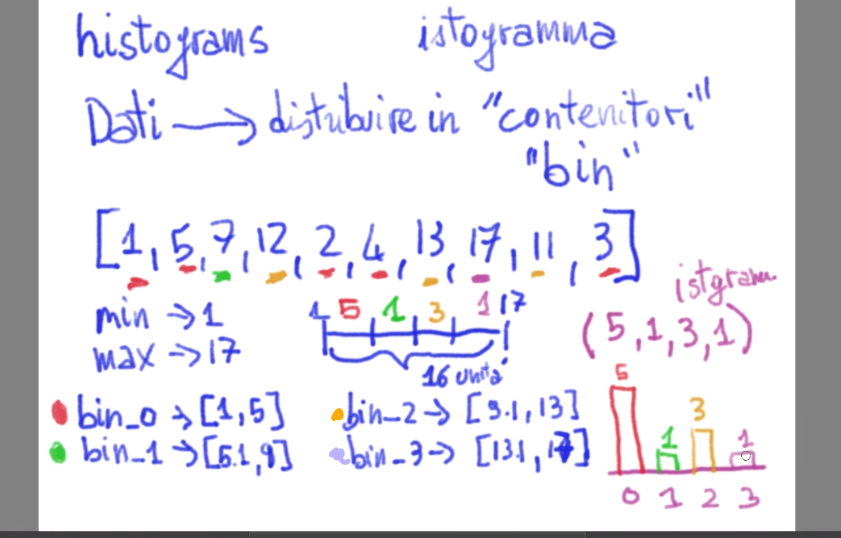 histograms istogramma
Dati → distribuire in "contenitori"
"bin"
[1, 5, 7, 12, 2, 4, 13, 17, 11, 3]
istgram
min → 1
max → 17
1 5 1 3 1 17
16 unità
(5, 1, 3, 1)
bin_0 → [1, 5] bin_2 → [9.1, 13]
bin_1 → [5.1, 9] bin_3 → [13.1, 17]
5 1 3 1
0 1 2 3